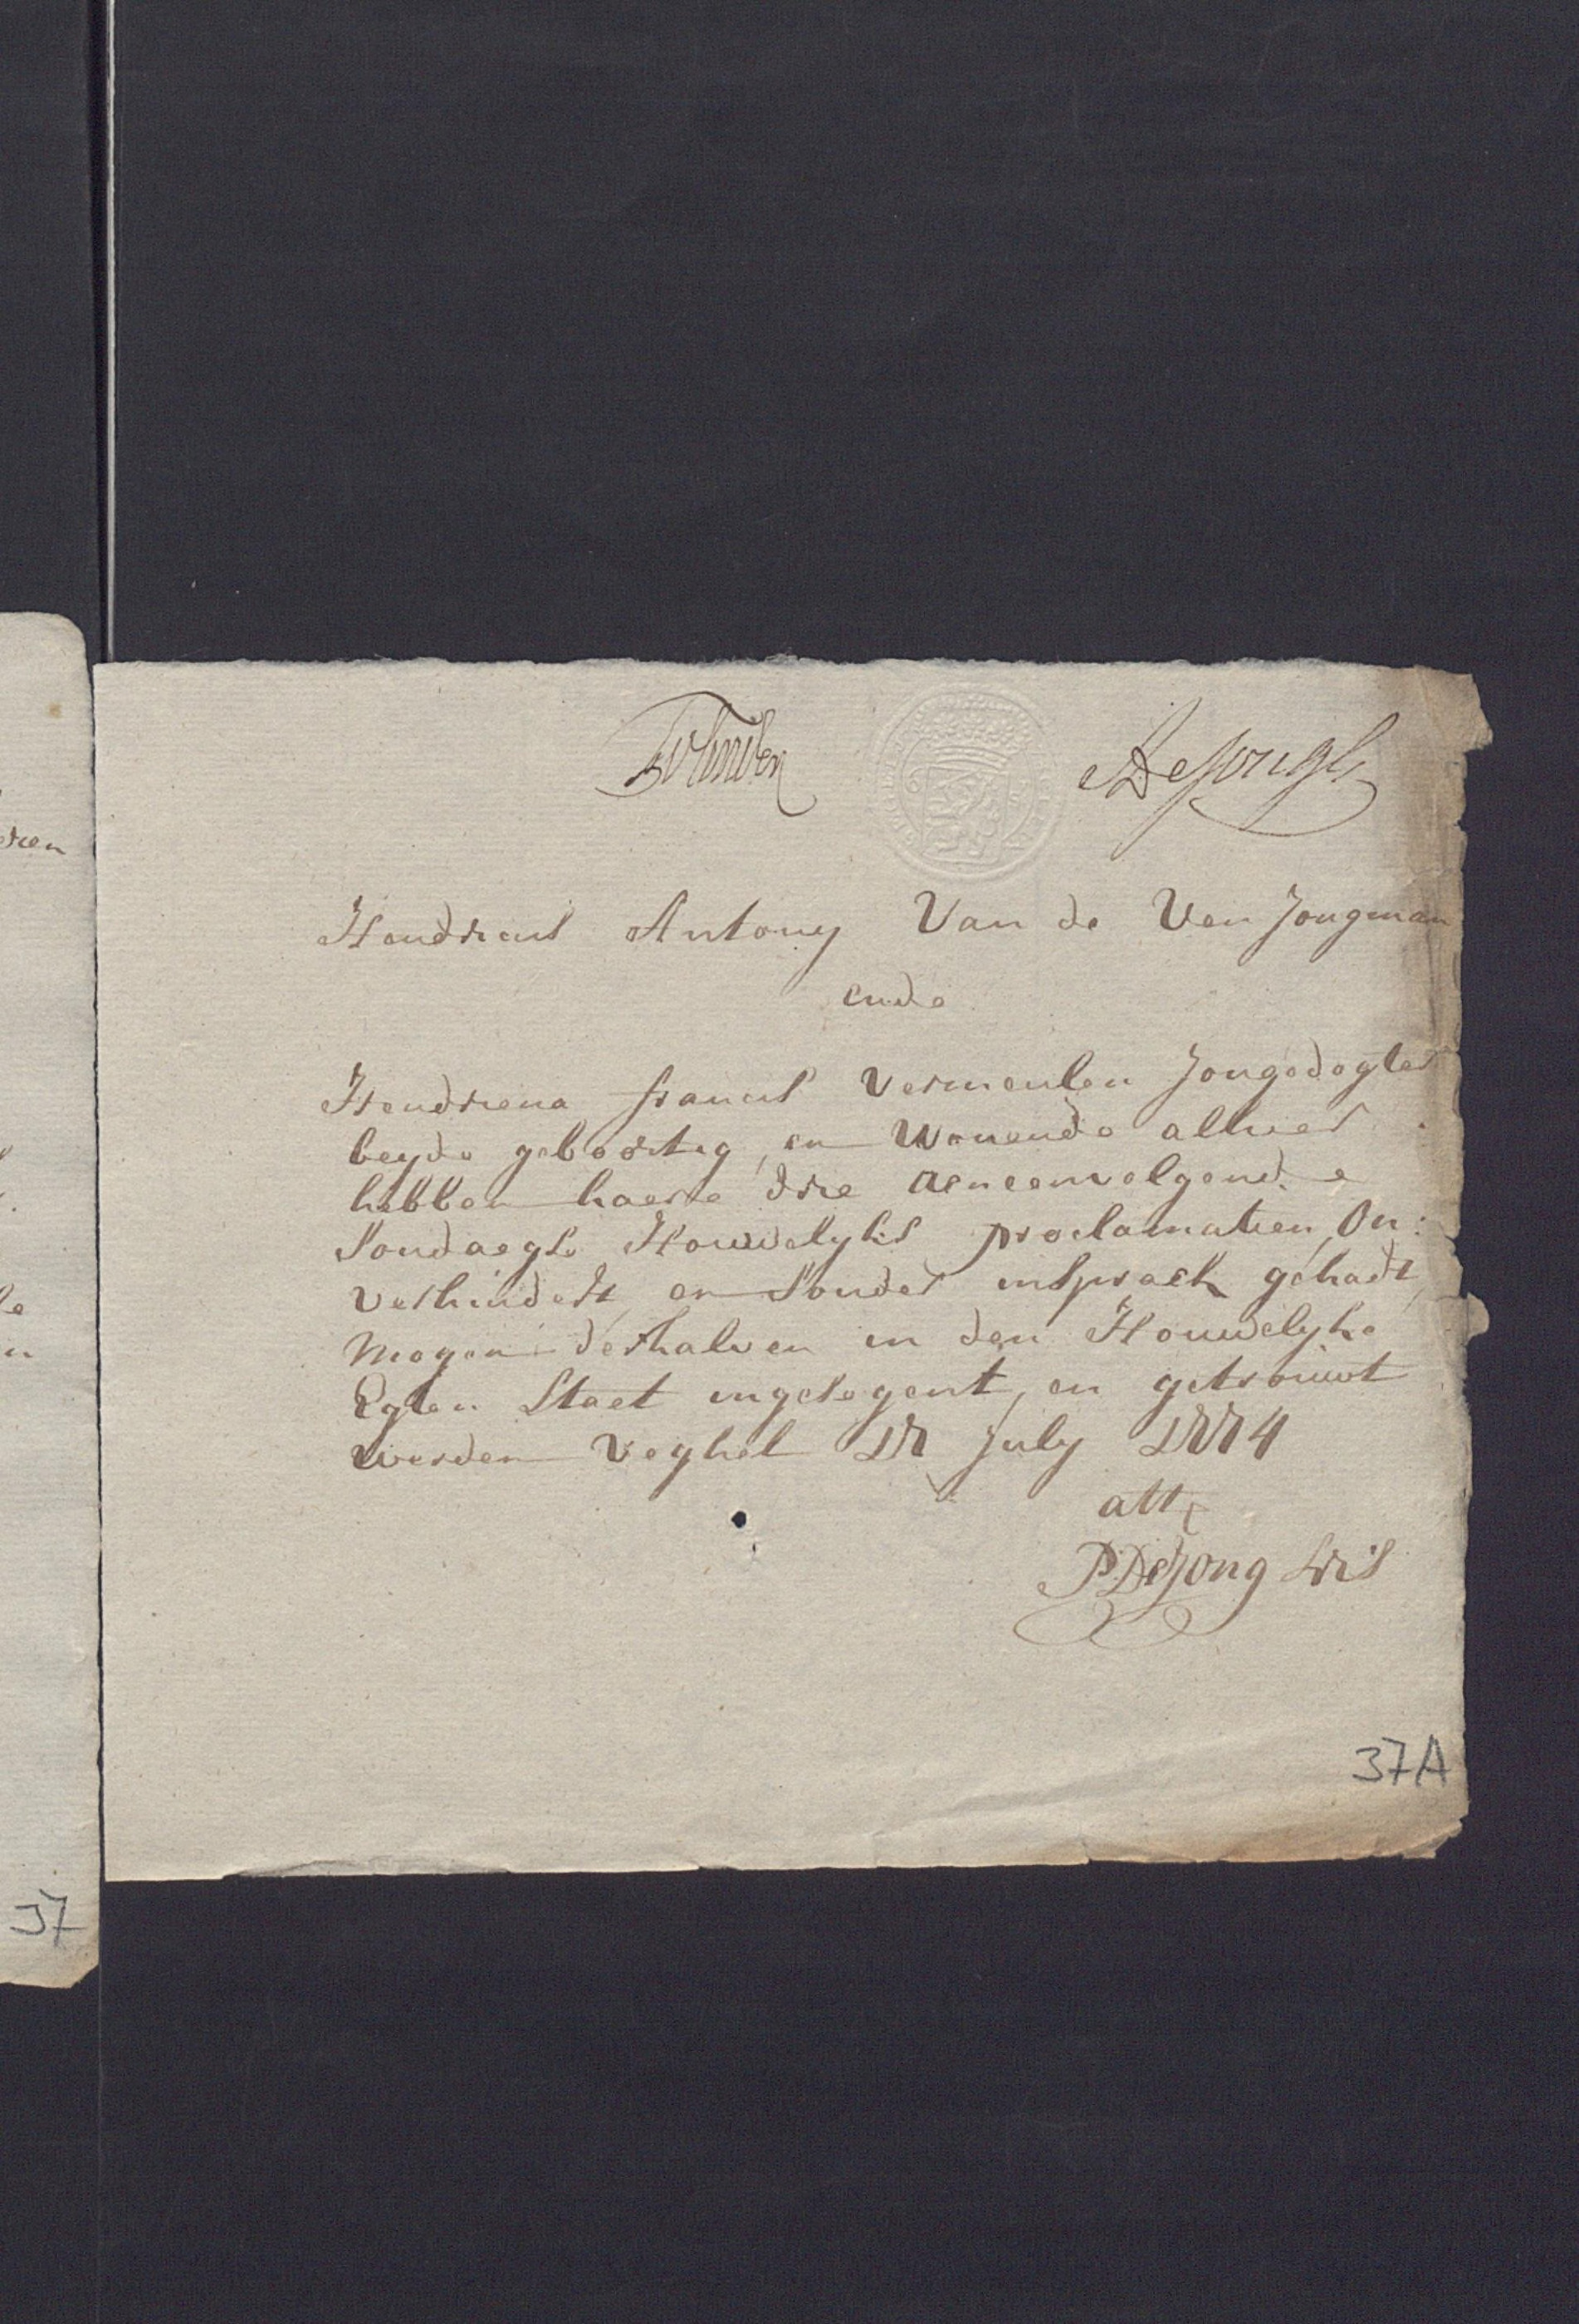 ADeJongh
Hendricus Antony Van de Ven Jongman
ende
Hendriena francis Vermeulen Jongedogter
beyde geboortig, en Wonende alhier
hebben haere drie aeneenvolgende
Sondaegse Houwelyks proclamatien, On:
verhindert, en Sonder inspraek gehadt,
mogen derhalven in den Houwelyke
Egten Staet ingesegent, en getrouwt
werden Veghel 17 July 1774
att
P: DeJong Scris
37A
37